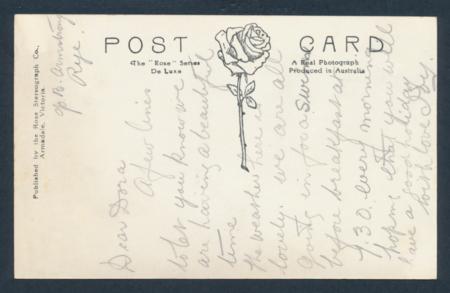 POST CARD
The "Rose" Series
De Luxe
A Real Photograph
Produced in Australia
Published by the Rose Stereograph Co.,
Armadale, Victoria.
Armstrong
Rye.
Dear Dora
A few lines
to let you know we
are having a beautiful
time
the weather here is
lovely. we are all
going in for a swim
before breakfast a
7.30. every morning
hoping that you will
have a good holiday
with love